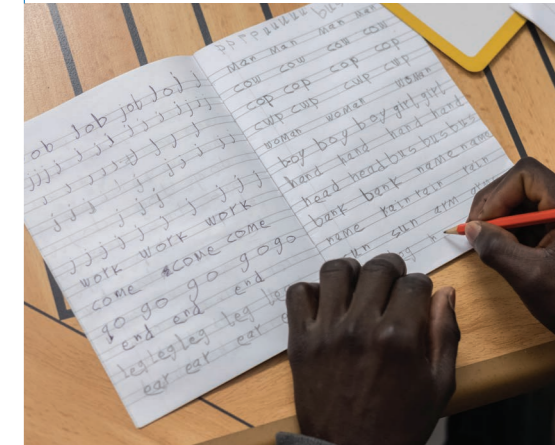 ob Job job Jojj
jjjj j j j j j j j j j
j j j j j j j j j
j j j j j j j j j
j j j j j j j j
work work work
come come come
go go go gogo
end end end
leg leg leg leg leg
ear ear ear
p p r p u u u u u bus
man man man man
cow cow cow cow
cop cop cop cop
cup cup cup cup
woman woman woman
boy boy boy girl girl
hand hand hand hand
head head bus bus bus
bank bank name name
name rain rain rain
sun arm arm